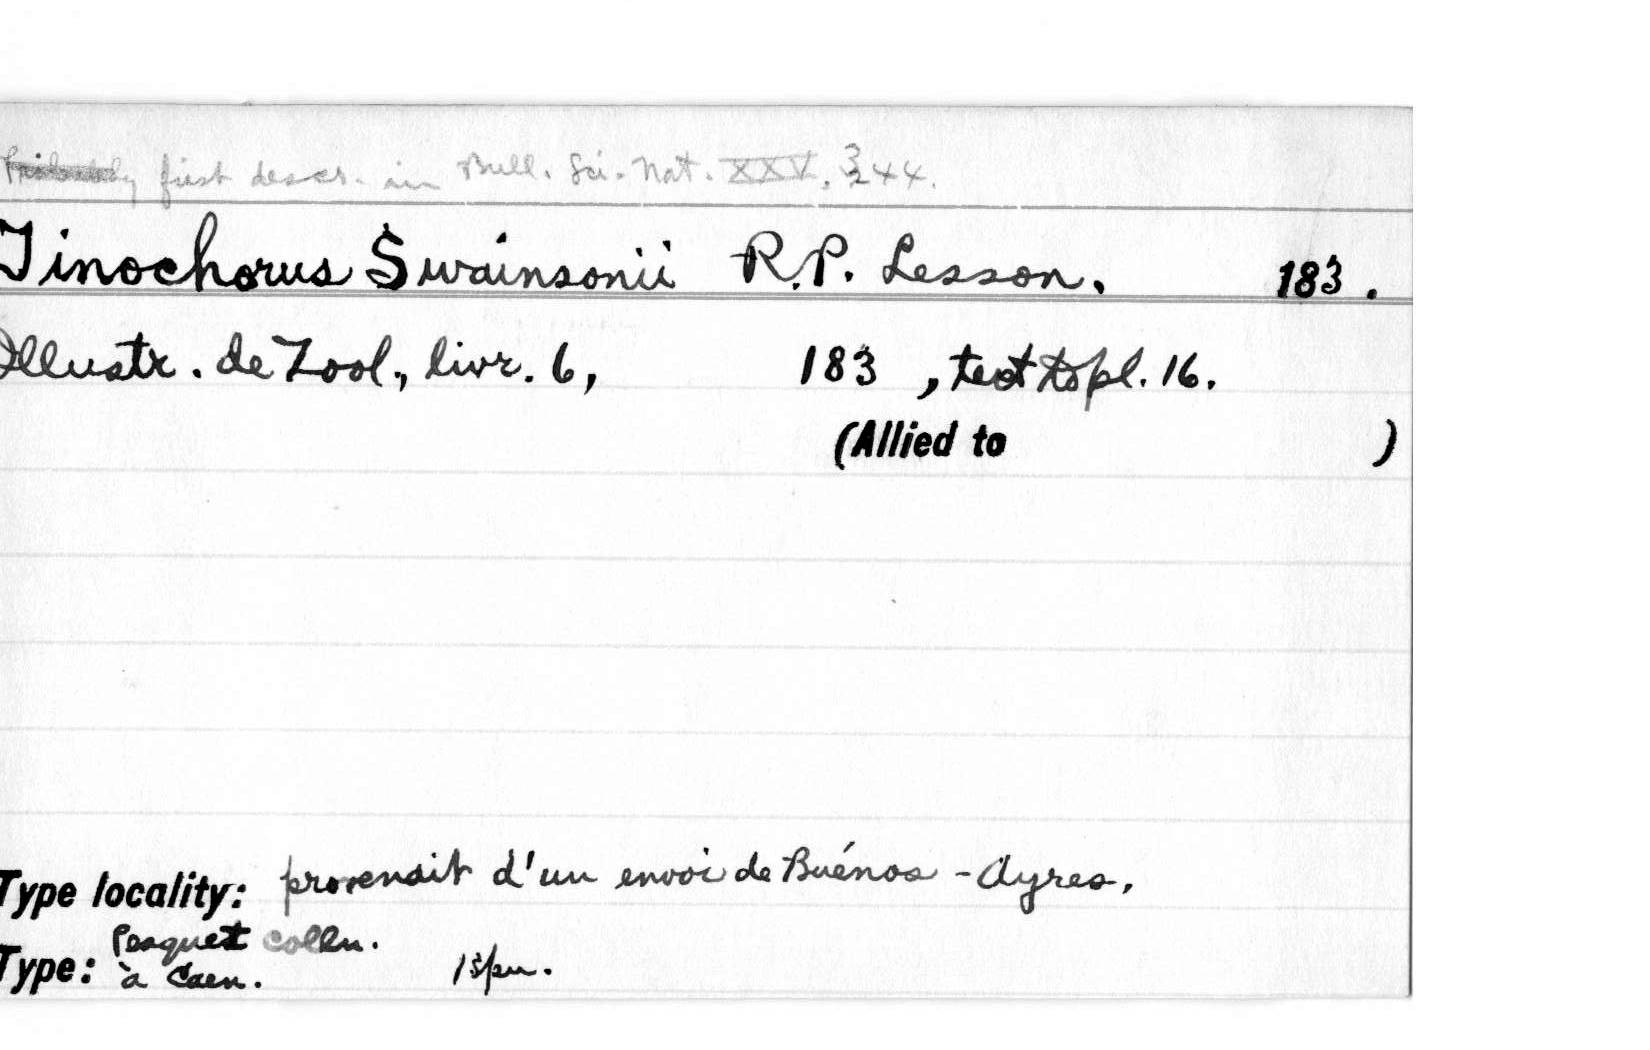 first descr. in Bull. Sci. Nat. XXV, 344.
Tinochorus Swainsonii R.P. Lesson. 183 .
Illustr. de Zool., livr. 6, 183 , text to pl. 16.
(Allied to )
Type locality: provenait d'un envoi de Buénos-Ayres.
Pesquet colln.
Type: à Caen. 1 spm.